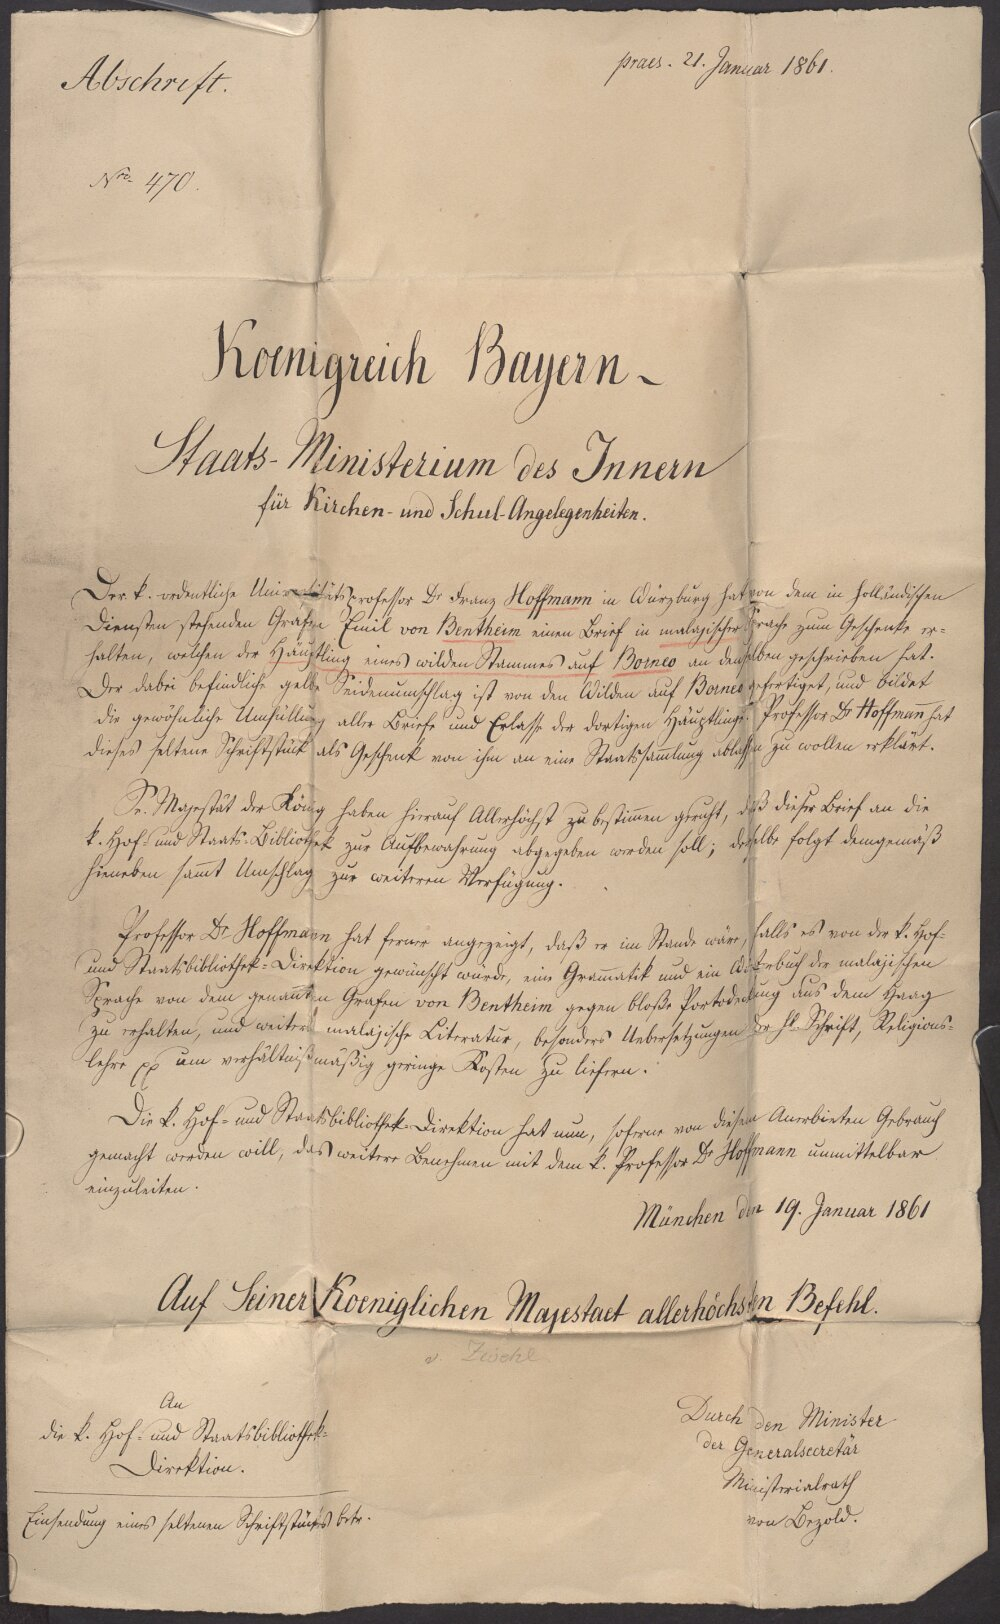 Abschrift.
praes. 21. Januar 1861.
Nro. 470.
Koenigreich Bayern
Staats-Ministerium des Innern
für Kirchen- und Schul-Angelegenheiten.
Der k. ordentliche Universitätsprofessor Dr Franz Hoffmann in Würzburg hat von dem in holländischen
Diensten stehenden Grafen Emil von Bentheim einen Brief in malayischer Sprache zum Geschenke er=
halten, welchen der Häuptling eines wilden Stammes auf Borneo an denselben geschrieben hat.
Der dabei befindliche gelbe Seidenumschlag ist von den Wilden auf Borneo gefertiget, und bildet
die gewöhnliche Umhüllung aller Briefe und Erlasse der dortigen Häuptlinge. Professor Dr Hoffmann hat
dieses seltene Schriftstück als Geschenk von ihm an eine Staatssammlung ablassen zu wollen erklärt.
Se. Majestät der König haben hierauf Allerhöchst zu bestimmen geruht, daß dieser Brief an die
k. Hof= und Staats=Bibliothek zur Aufbewahrung abgegeben werden soll; derselbe folgt demgemäß
hieneben sammt Umschlag zur weiteren Verfügung.
Professor Dr Hoffmann hat ferner angezeigt, daß er im Stande wäre, falls es von der k. Hof=
und Staatsbibliothek=Direktion gewünscht würde, eine Grammatik und ein Wörterbuch der malajischen
Sprache von dem genannten Grafen von Bentheim gegen bloße Portodeckung aus dem Haag
zu erhalten, und weitere malajische Literatur, besonders Uebersetzungen der hl. Schrift, Religions=
lehre pp um verhältnißmäßig geringe Kosten zu liefern.
Die k. Hof= und Staatsbibliothek=Direktion hat nun, soferne von diesem Anerbieten Gebrauch
gemacht werden will, das weitere Benehmen mit dem k. Professor Dr Hoffmann unmittelbar
einzuleiten.
München den 19. Januar 1861
Auf Seiner Koeniglichen Majestaet allerhöchsten Befehl.
v. Zwehl
An
die k. Hof= und Staatsbibliothek=
Direktion.
Einsendung eines seltenen Schriftstücks betr.
Durch den Minister
der Generalsecretär
Ministerialrath
von Bezold.